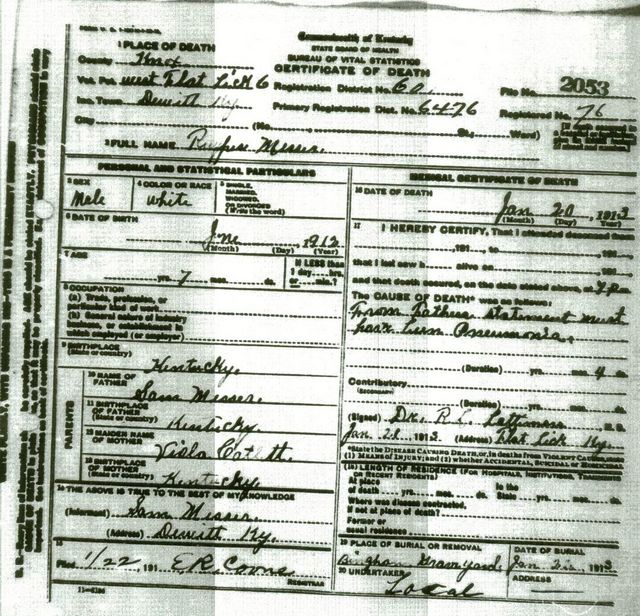 Commonwealth of Kentucky
STATE BOARD OF HEALTH
BUREAU OF VITAL STATISTICS
CERTIFICATE OF DEATH
1 PLACE OF DEATH
County Knox
Vot. Pct. West Flat Lick 6 Registration District No. 60 File No. 2053
Inc. Town Dewitt Ky Primary Registration Dist. No. 6476 Registered No. 76
City (No. St., Ward)
2 FULL NAME Messer
PERSONAL AND STATISTICAL PARTICULARS
3 SEX Male
4 COLOR OR RACE White
5 SINGLE, MARRIED, WIDOWED, OR DIVORCED (Write the word)
6 DATE OF BIRTH
June, 1912
(Month) (Day) (Year)
7 AGE
yrs. 7 mos. ds.
If LESS than 1 day, hrs. or min.?
8 OCCUPATION
(a) Trade, profession, or particular kind of work
(b) General nature of industry, business, or establishment in which employed (or employer)
9 BIRTHPLACE
(State or country) Kentucky
PARENTS
10 NAME OF FATHER Sam Messer
11 BIRTHPLACE OF FATHER
(State or country) Kentucky
12 MAIDEN NAME OF MOTHER Viola
13 BIRTHPLACE OF MOTHER
(State or country) Kentucky
14 THE ABOVE IS TRUE TO THE BEST OF MY KNOWLEDGE
(Informant) Sam Messer
(Address) Dewitt Ky.
15
Filed 1/22 191 E.R.
REGISTRAR
MEDICAL CERTIFICATE OF DEATH
16 DATE OF DEATH
Jan 20, 1913
(Month) (Day) (Year)
17 I HEREBY CERTIFY, That I attended deceased from
, 191 , to , 191 ,
that I last saw h alive on , 191 ,
and that death occured, on the date stated above, at
The CAUSE OF DEATH* was as follows:
From Fathers statement must
have been Pneumonia.
(Duration) yrs. mos. 4 ds.
Contributory
(SECONDARY)
(Duration) yrs. mos. ds.
(Signed) Dr. R. L. M.D.
Jan 21, 1913 (Address) Flat Lick Ky.
*State the DISEASE CAUSING DEATH, or, in deaths from VIOLENT CAUSES,
(1) MEANS OF INJURY; and (2) whether ACCIDENTAL, SUICIDAL or HOMICIDAL
18 LENGTH OF RESIDENCE (FOR HOSPITALS, INSTITUTIONS, TRANSIENTS
OR RECENT RESIDENTS)
At place of death yrs. mos. ds. In the State yrs. mos. ds.
Where was disease contracted, if not at place of death?
Former or usual residence
19 PLACE OF BURIAL OR REMOVAL
Graveyard
DATE OF BURIAL
Jan 1913
20 UNDERTAKER
Local
ADDRESS